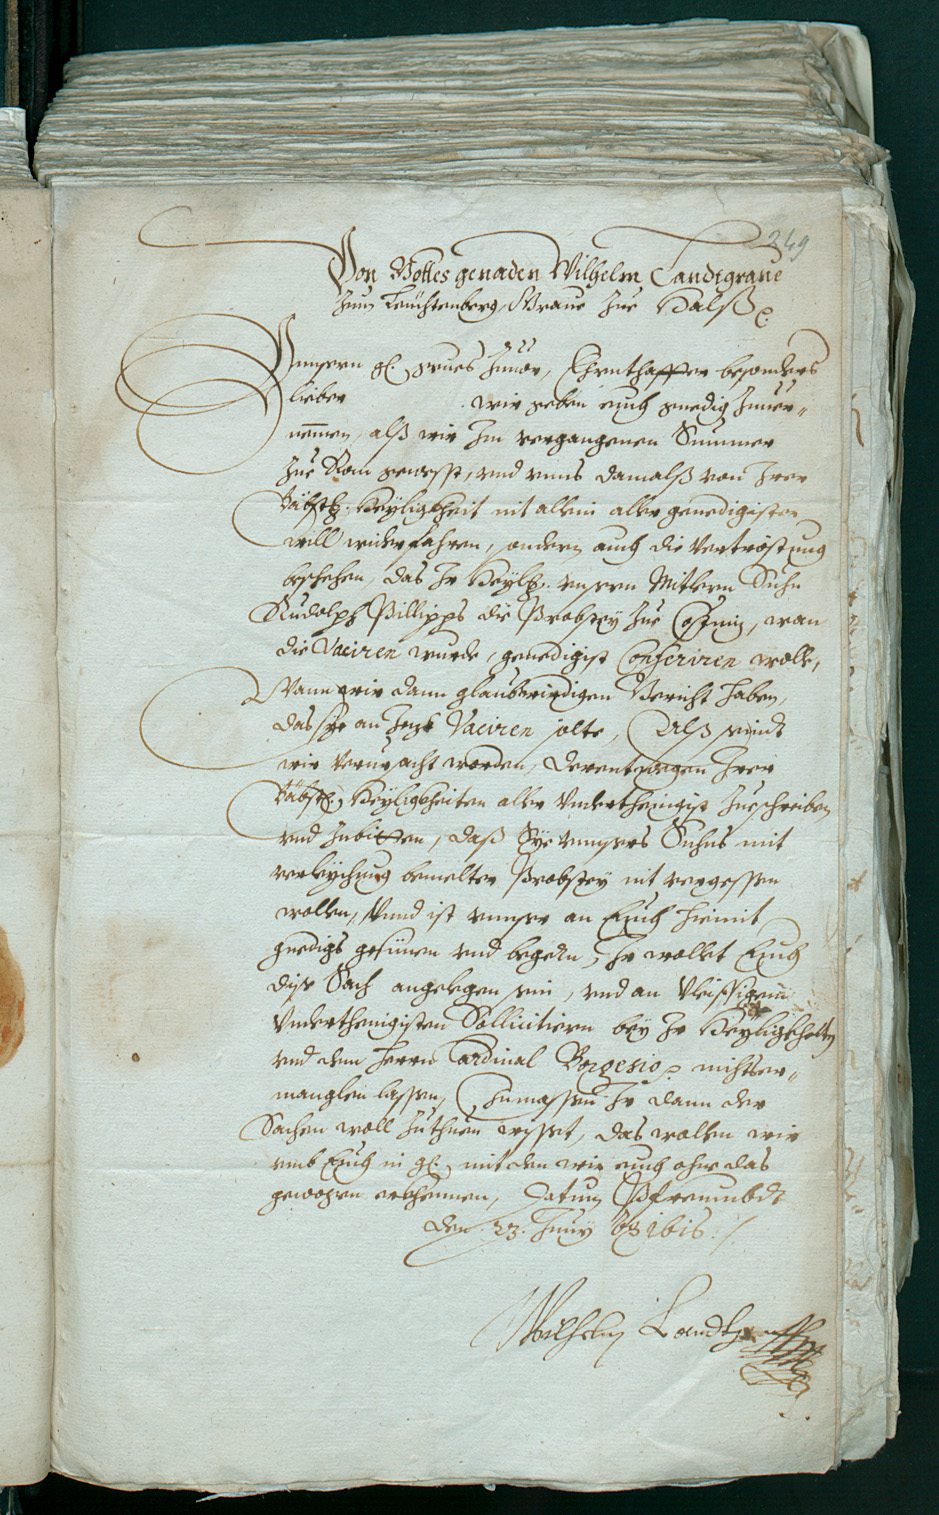 249
Von Gottes genaden Wilhelm Landtgraue
Zum Leüchtenberg, Graue Zue Halß
Unnsern gl. grues Zuuor, Ehrnthaffter besonders
lieber wir geben euch gnedig Zuuer-
nemen, alß wir Im vergangenen Summer
Zue Rom gewesst, vnd vnns damalß von Irer
Bäbstl. Heÿligkheit nit allein aller genedigister
will widerfahren, sondern auch die Vertröstung
beschehen, das Ir Heÿlt. vnsern Mitlern Suhn
Rudolph Phillipps die Brobsteÿ Zue Cosstniz, wan
die Vaciren wurde, genedigist Conferiren wolle,
Wann wir dann glaubwirdigen Bericht haben,
das sye an Jezt Vaciren solte, Alß seindt
wir Verursacht worden, derentwegen Irer
Bäbstl. Heÿligkheiten aller Vnderthenigist Zueschreiben
vnd Zubitten, daß Sÿe vnnsers Suhns mit
verleÿhung bemelter Brobsteÿ nit vergessen
wollen, Vnnd ist vnnser an Euch hiemit
gnedigs gesünen vnd begern, Ir wollet Euch
dise Sach angelegen sein, vnd an Vleissigem
Vnderthenigisten Sollicitiern beÿ Ir Heÿligkheit
vnd dem herrn Cardinal Borgesio nichts er-
manglen lassen, Inmassen Ir dann der
Sachen woll Zuthuen wisset, das wollen wir
vmb Euch in gl. mit den wir euch ohne das
gewogen erkhennen, Datum Pfreimbdt
den 23. Junÿ Ao 1616.
Wilhelm Landtgraff